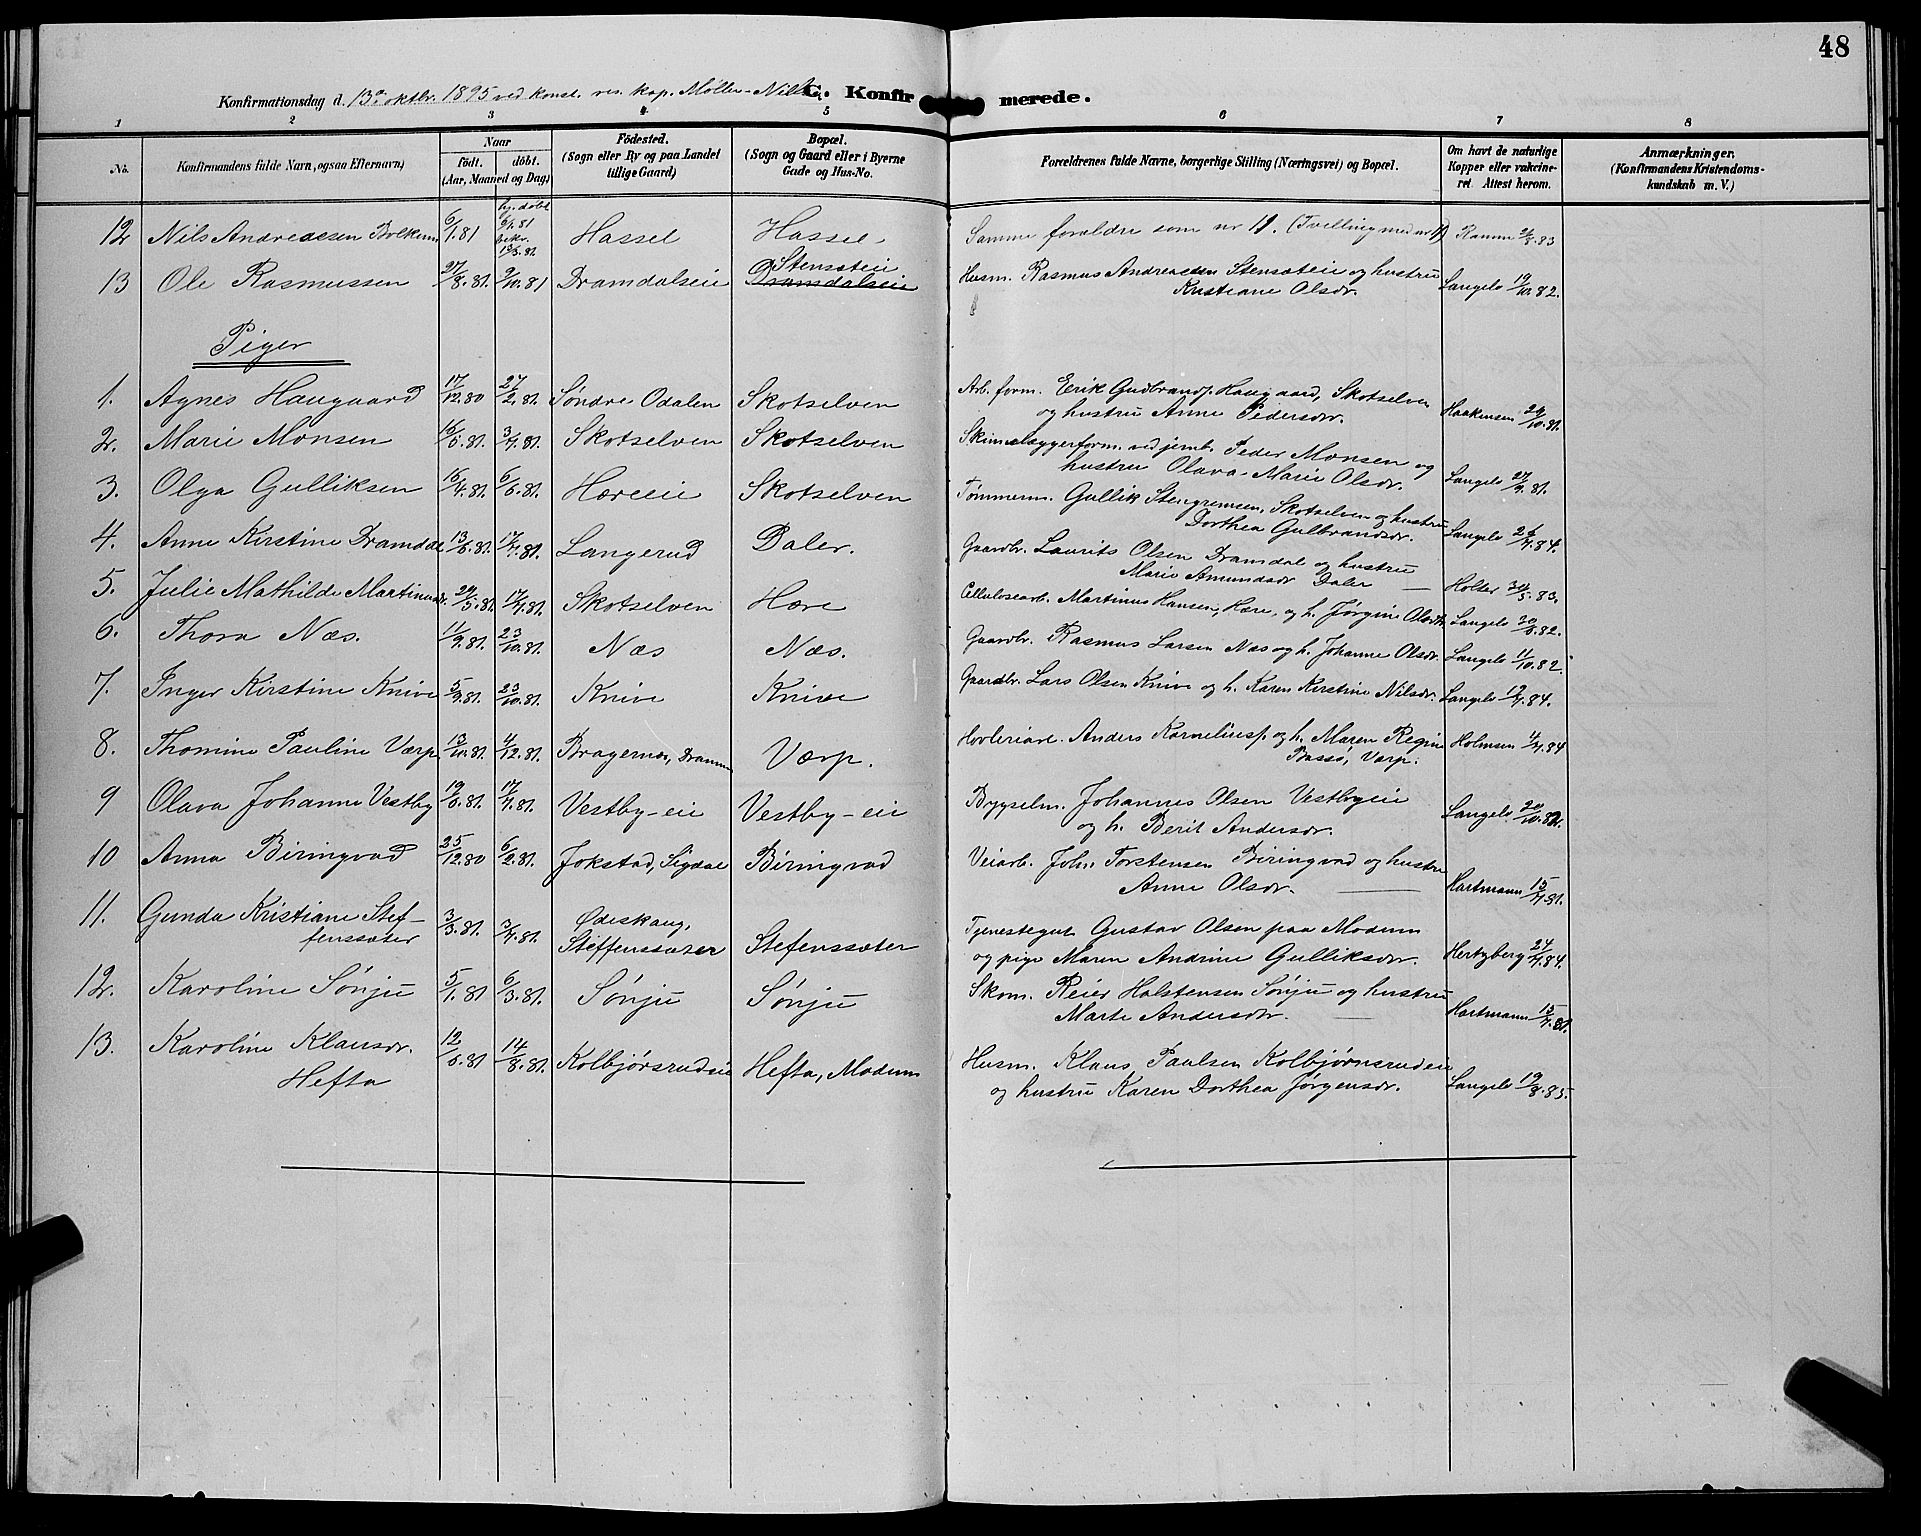 48
Konfirmationsdag d. 13de oktbr. 1895 ved konst. res. kap. Møller-
C. Konfirmerede.
1 2 3 4 5 6 7 8
No. Konfirmandens fulde Navn, ogsaa Efternavn) Naar født. døbt. (Aar, Maaned og Dag) Födested. (Sogn eller By og paa Landet tillige Gaard) Bopæl. (Sogn og Gaard eller i Byerne Gade og Hus-No. Forældrenes fulde Navne, borgerlige Stilling (Næringsvei) og Bopæl. Om havt de naturlige Kopper eller vakcineret. Attest herom. Anmærkninger. (Konfirmandens Kristendomskundskab m. V.)
12 Nils Andreassen 6/1.81 hj. døbt 6/1.81 bekr. Hassel Hassel Samme forældre som nr 11. (Tvilling med nr 11) Ramm 83
13 Ole Rasmussen 27/8.81 2/10.81 Dramdalseie Stensæteie Dramdalseie Husm. Rasmus Andreassen Stensæteie og hustru
Kristiane Olsdr. Langelo 19/10.82.
Piger
1. Agnes Haugaard 17/12.80 27/2.81. Søndre Odalen Skotselven Arb. form. Erik Gudbrands. Haugaard, Skotselven
og hustru Anne Pedersdr. Haakensen 10.81.
2. Marie Monsen 16/5.81. 3/7.81. Skotselven Skotselven Skinnelæggerform. ved jernb. Peder Monsen og
hustru Olava Marie Olsdr. Langelo 27/9.81.
3. Olga Gulliksen 16/4.81. 6/6.81. Hæreeie Skotselven Tømmerm. Gullik Stengrimsen, Skotselven og hustru
Dorthea Gulbrandsdr. Langelo 26/7.84.
4. Anne Kirstine Dramdal 13/6.81. 17/7.81. Langerud Daler. Gaardbr. Laurits Olsen Dramdal og hustru
Marie Amundsdr Daler Holter 83.
5. Julie Mathilde Martinusdr. 29/5.81. 17/7.81. Skotselven Hære Cellulosearb. Martinus Hansen, Hære, og h. Jørgine Olsdtr. Langelo 82.
6. Thora Næs. 11/9.81. 23/10.81. Næs Næs. Gaardbr. Rasmus Larsen Næs og h. Johanne Olsdr. Langelo 11/10.82.
7. Inger Kirstine Knive 5/9.81. 23/10.81. Knive Knive Gaardbr. Lars Olsen Knive og h. Karen Kirstine Nilsdr. Langelo 84.
8. Thomine Pauline Værp. 13/10.81. 4/12.81. Bragernæs, Drammen Værp. Høvleriarb. Anders Korneliusp. og h. Maren Regine
Bassø, Værp. Holmsen 84
9 Olava Johanne Vestby 19/6.81. 17/7.81. Vestby-eie Vestby-eie Bygselm. Johannes Olsen Vestbyeie
og h. Berit Andersdr. Langelo 20/10.82.
10 Anna Biringvad 25/12.80 6/2.81. Jokstad, Sigdal Biringvad Veiarb. Johs. Torstensen Biringvad og hustru
Anne Olsdr. Hartmann 15/7.81.
11. Gunda Kristiane Stef-
fenssæter 3/3.81. 3/7.81. Ødeskaug,
Steffenssæter Stefenssæter Tjenestegut Gustav Olsen paa Modum
og pige Maren Andrine Gulliksdr. Hertzberg 24/7.84.
12. Karoline Sønju 5/1.81 6/3.81. Sønju Sønju Skom. Reier Halstensen Sønju og hustru
Marte Andersdr. Hartmann 15/7.81.
13. Karoline Klausdr.
Hefta 12/6.81 14/8.81. Kolbjørsrudeie Hefta, Modum Husm. Klaus Paulsen Kolbjørnsrudeie
og hustru Karen Dorthea Jørgensdr. Langelo 19/8.85.